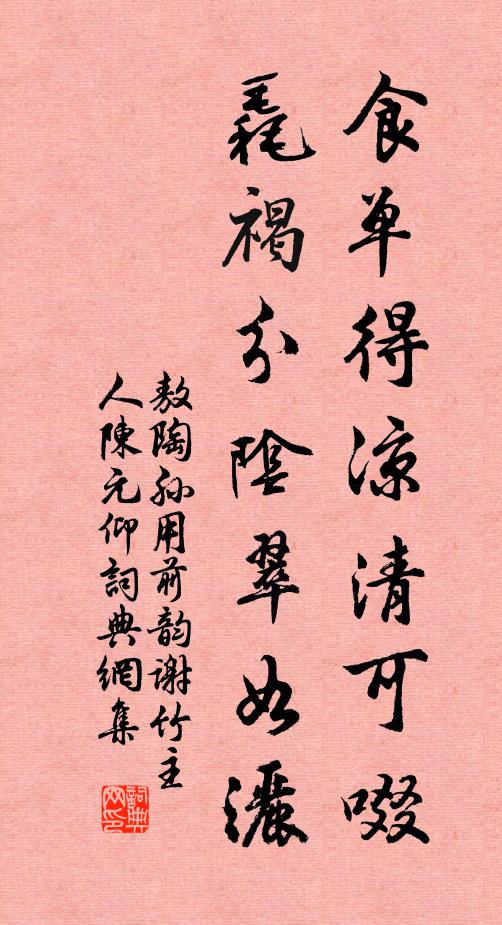 食单得凉清可啜
毳褐分陰翠如灑
敖陶孙用前韵谢竹主
人陳元仰詞典網集
詞典网印